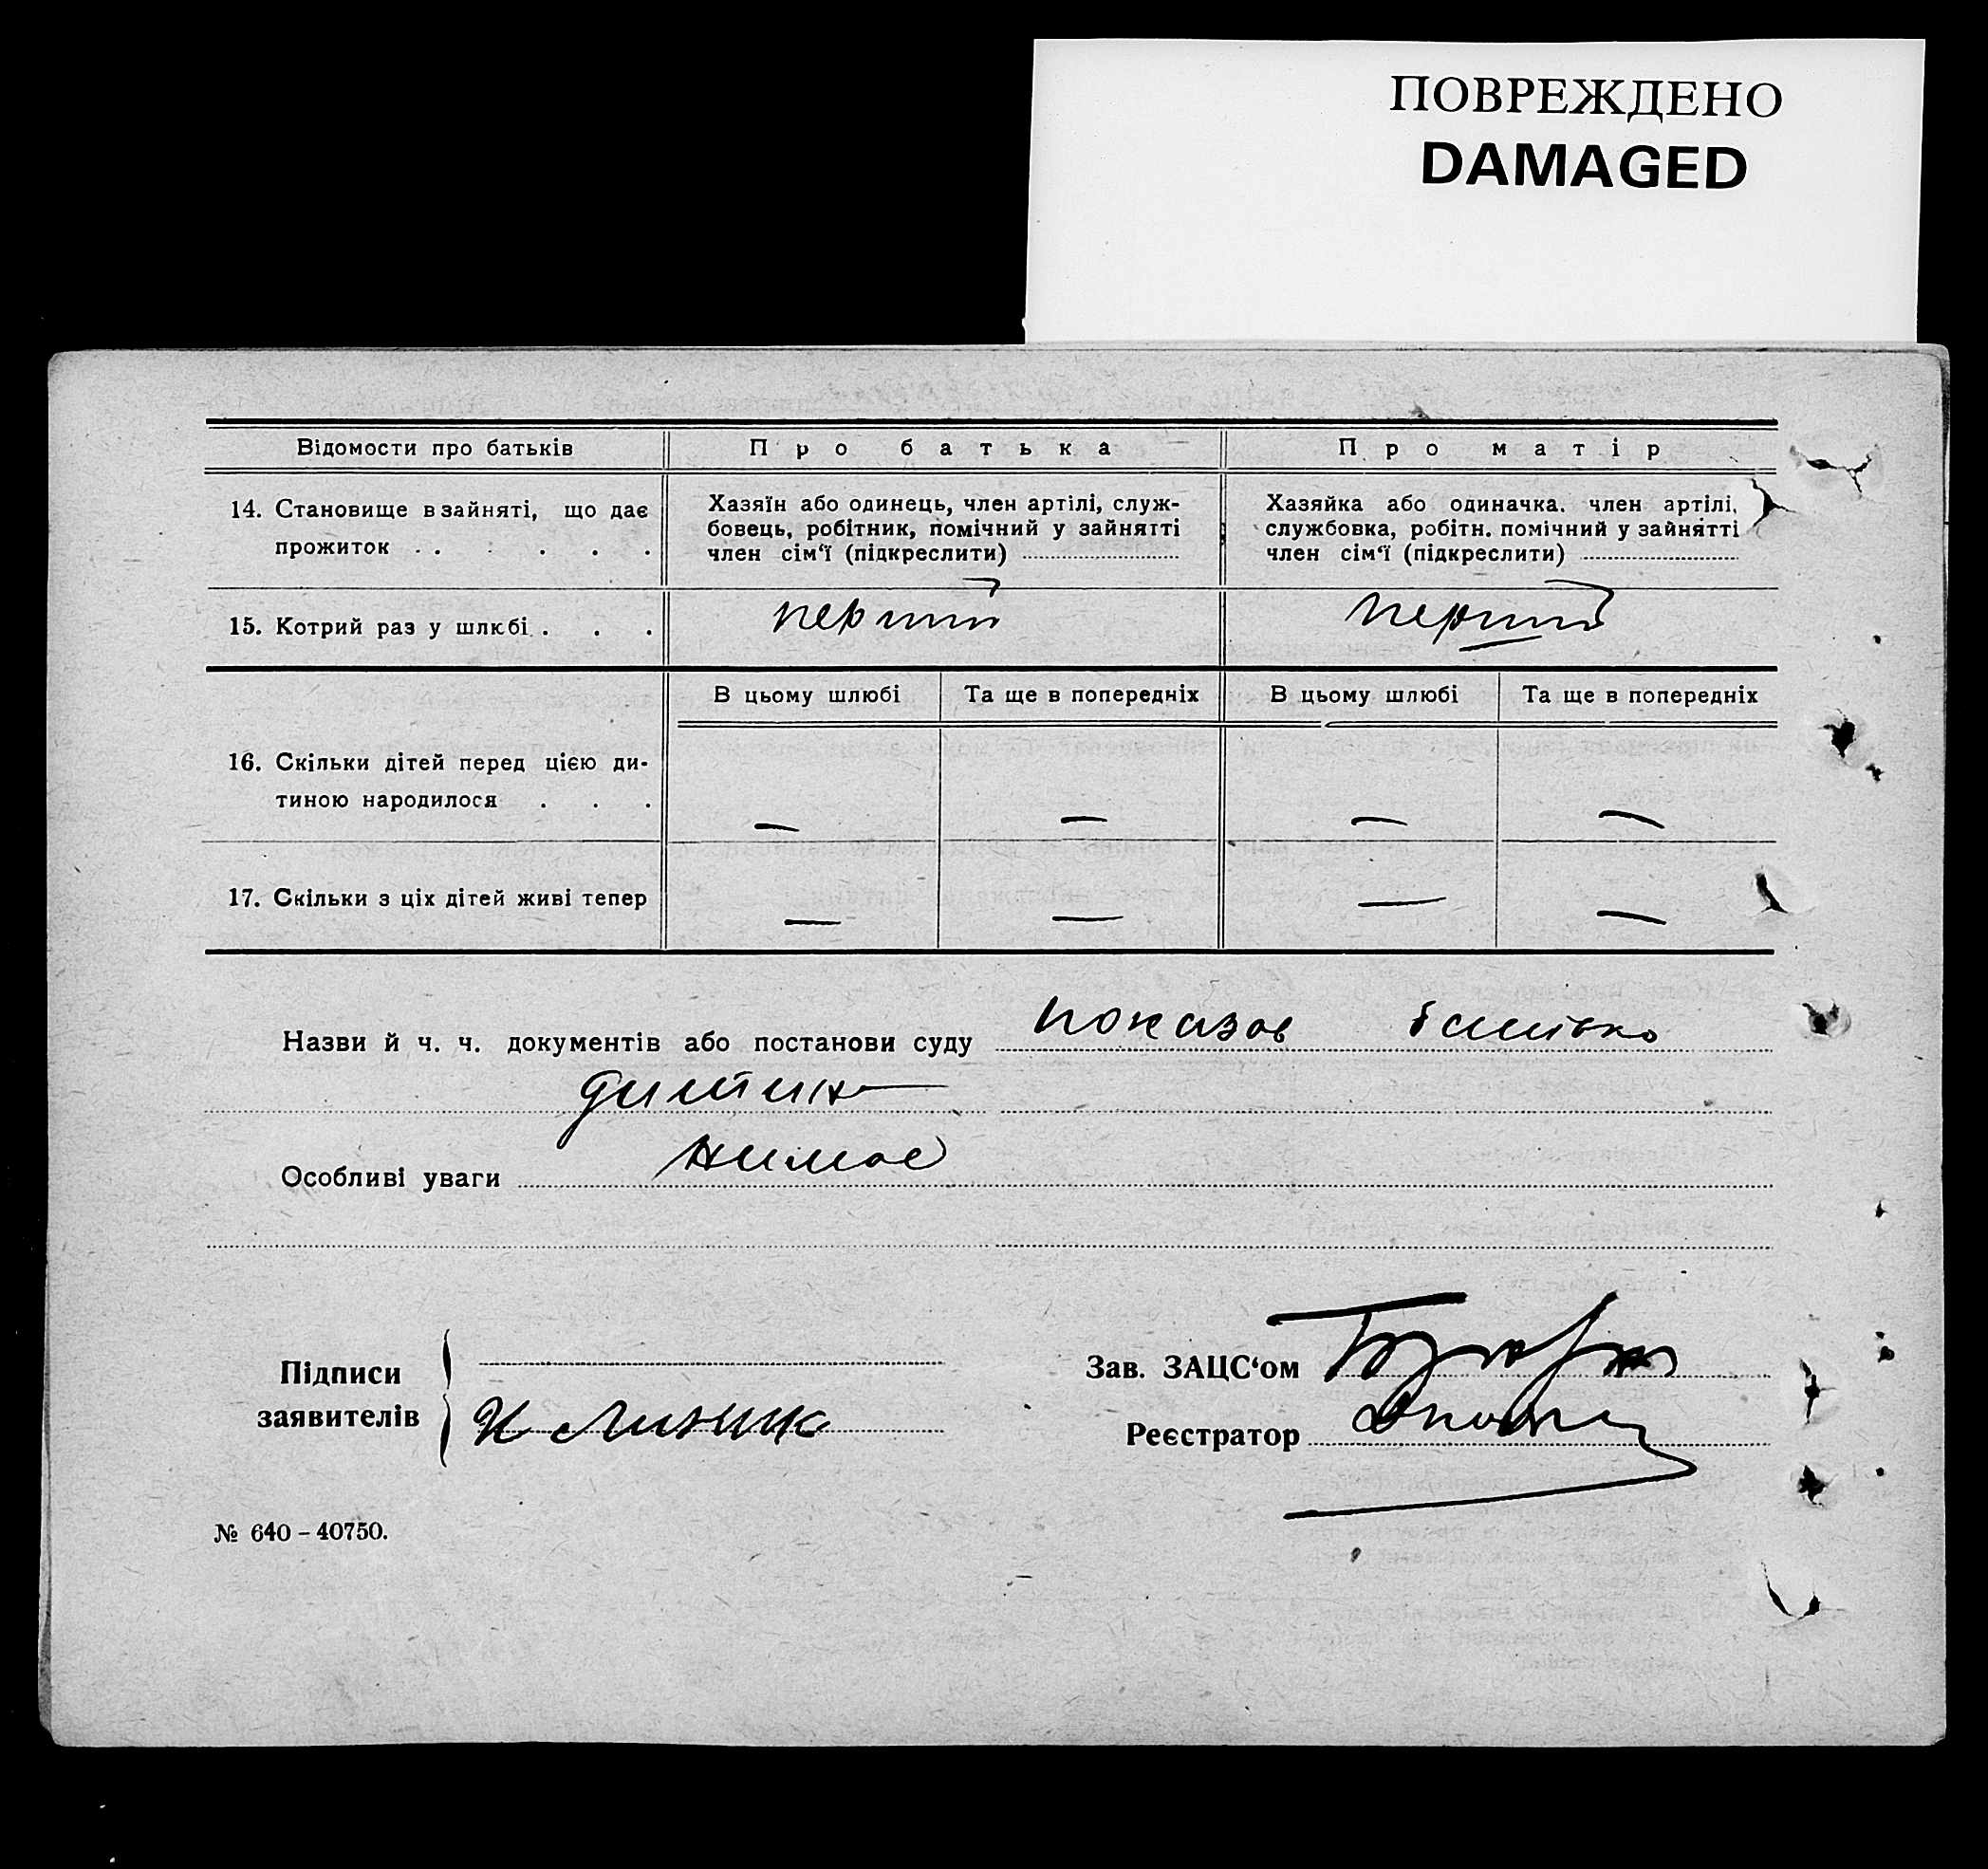 ПОВРЕЖДЕНО
DAMAGED
Відомости про батьків
Про батька
Про матір
14. Становище в зайняті, що дає
прожиток . . . . . .
Хазяїн або одинець, член артілі, служ-
бовець, робітник, помічний у зайнятті
член сім‘ї (підкреслити)
Хазяйка або одиначка. член артілі,
службовка, робітн. помічний у зайнятті
член сім‘ї (підкреслити)
15. Котрий раз у шлюбі . . .
перший
перший
В цьому шлюбі
Та ще в попередніх
В цьому шлюбі
Та ще в попередніх
16. Скільки дітей перед цією ди-
тиною народилося . . .
— — — —
17. Скільки з ціх дітей живі тепер
— — — —
Назви й ч. ч. документів або постанови суду показов батько
дитини
Особливі уваги нимає
Підписи
заявителів
Зав. ЗАЦС‘ом
Реєстратор
№ 640 – 40750.